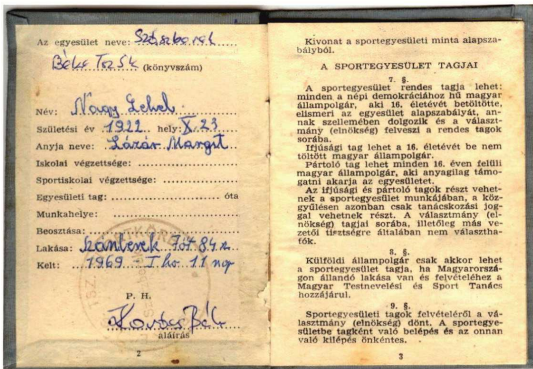 Az egyesület neve:
Béke TSZSK (könyvszám)
Név: Nagy Lehel
Születési év 1922 hely: X. 23
Anyja neve: Lázár Margit
Iskolai végzettsége:
Sportiskolai végzettsége:
Egyesületi tag: óta
Munkahelye:
Beosztása:
Lakása:
Kelt: 1969 I. hó. 11 nap
P. H.
Kovács Béla
aláírás
2
Kivonat a sportegyesületi minta alapsza-
bályból.
A SPORTEGYESÜLET TAGJAI
7. §.
A sportegyesület rendes tagja lehet:
minden a népi demokráciához hű magyar
állampolgár, aki 16. életévét betöltötte,
elismeri az egyesület alapszabályát, an-
nak szellemében dolgozik és a választ-
mány (elnökség) felveszi a rendes tagok
sorába.
Ifjúsági tag lehet a 16. életévét be nem
töltött magyar állampolgár.
Pártoló tag lehet minden 16. éven felüli
magyar állampolgár, aki anyagilag támo-
gatni akarja az egyesületet.
Az ifjúsági és pártoló tagok részt vehet-
nek a sportegyesület munkájában, a köz-
gyűlésen azonban csak tanácskozási jog-
gal vehetnek részt. A választmány (el-
nökség) tagjai sorába, illetőleg más ve-
zetői tisztségre általában nem választha-
tók.
8. §.
Külföldi állampolgár csak akkor lehet
a sportegyesület tagja, ha Magyarorszá-
gon állandó lakása van és felvételéhez a
Magyar Testnevelési és Sport Tanács
hozzájárul.
9. §.
Sportegyesületi tagok felvételéről a vá-
lasztmány (elnökség) dönt. A sportegye-
sületbe tagként való belépés és az onnan
való kilépés önkéntes.
3